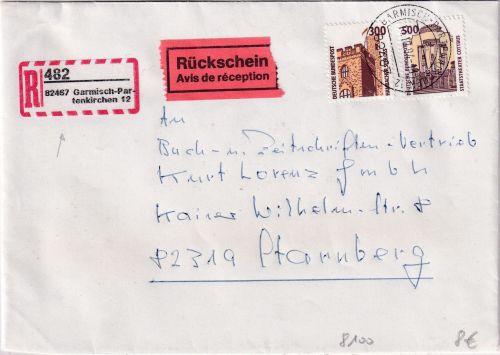 R 482
82467 Garmisch-Par-
tenkirchen 12
Rückschein
Avis de réception
300
DEUTSCHE BUNDESPOST
500
STAATSTHEATER COTTBUS
GARMISCH-
An
Buch- u. Zeitschriften-Vertrieb
Kurt Lorenz GmbH
Kaiser Wilhelm-Str. 8
82319 Starnberg
8100
8€